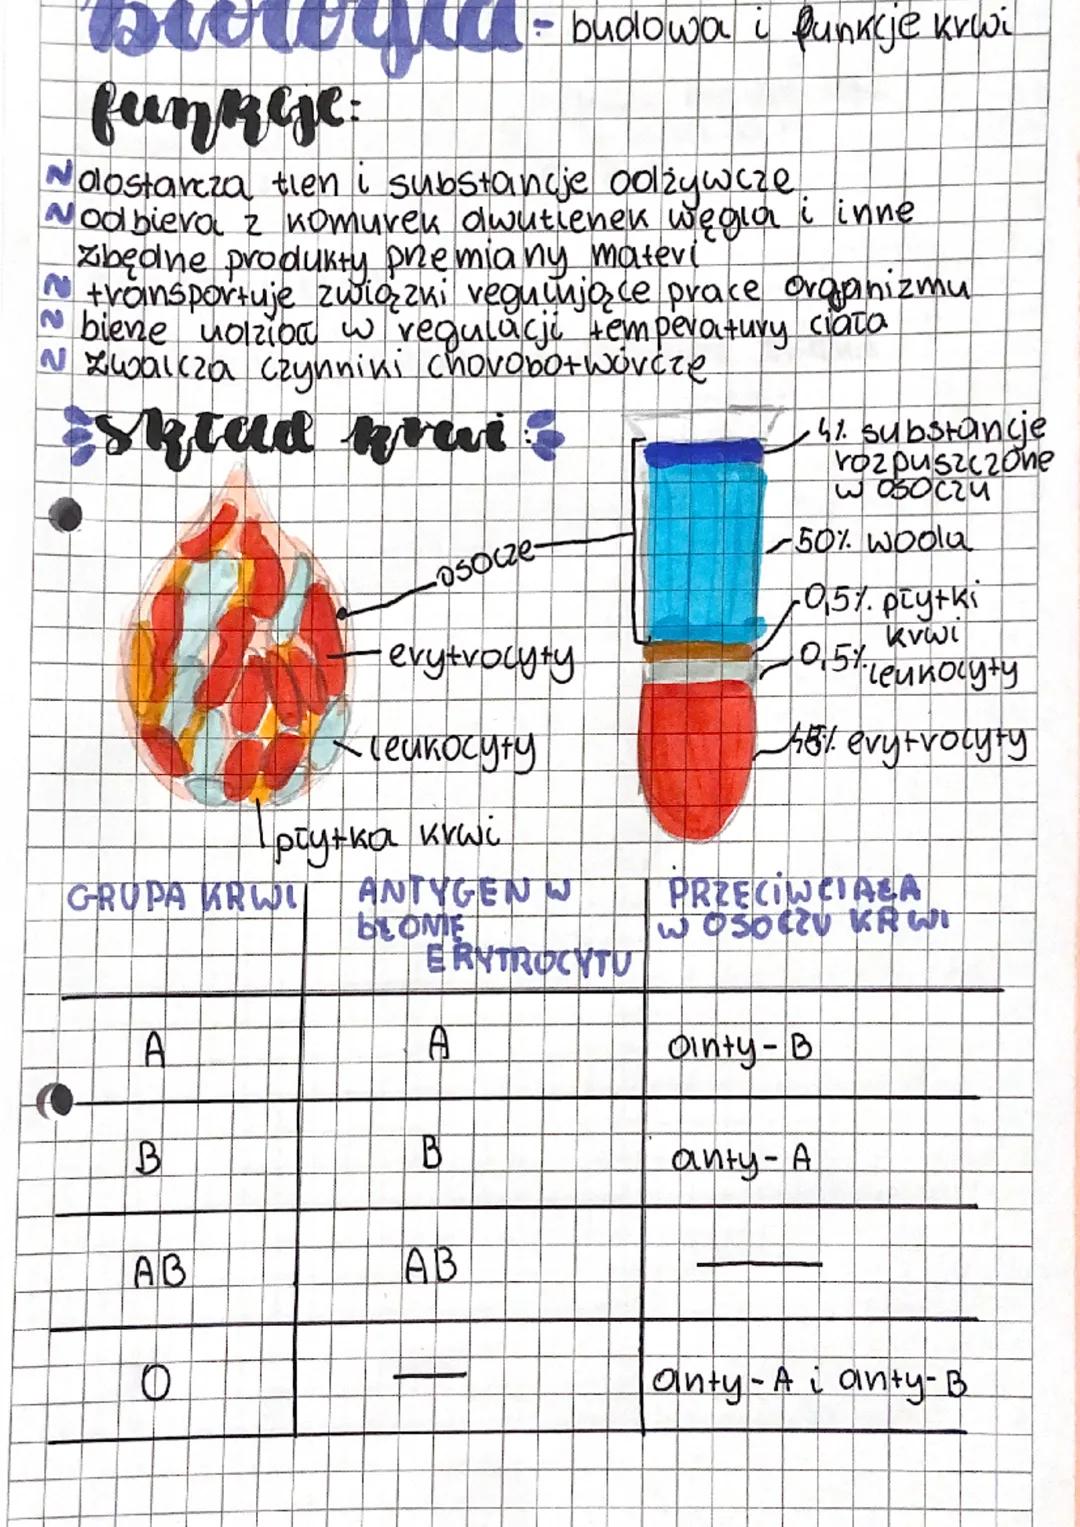 biologia - budowa i funkcje krwi
funkcje:
~ dostarcza tlen i substancje odżywcze
~ odbiera z komurek dwutlenek węgla i inne
zbędne produkty przemiany materi
~ transportuje związki regulujące prace organizmu
~ bierze udział w regulacji temperatury ciała
~ zwalcza czynniki chorobotwórcze
skład krwi:
4% substancje
rozpuszczone
w osoczu
osocze
50% woda
0,5% płytki
krwi
erytrocyty
0,5% leukocyty
leukocyty
45% erytrocyty
płytka krwi
GRUPA KRWI
ANTYGEN W
BŁONIE
ERYTROCYTU
PRZECIWCIAŁA
W OSOCZU KRWI
A A anty-B
B B anty-A
AB AB —
O — anty-A i anty-B